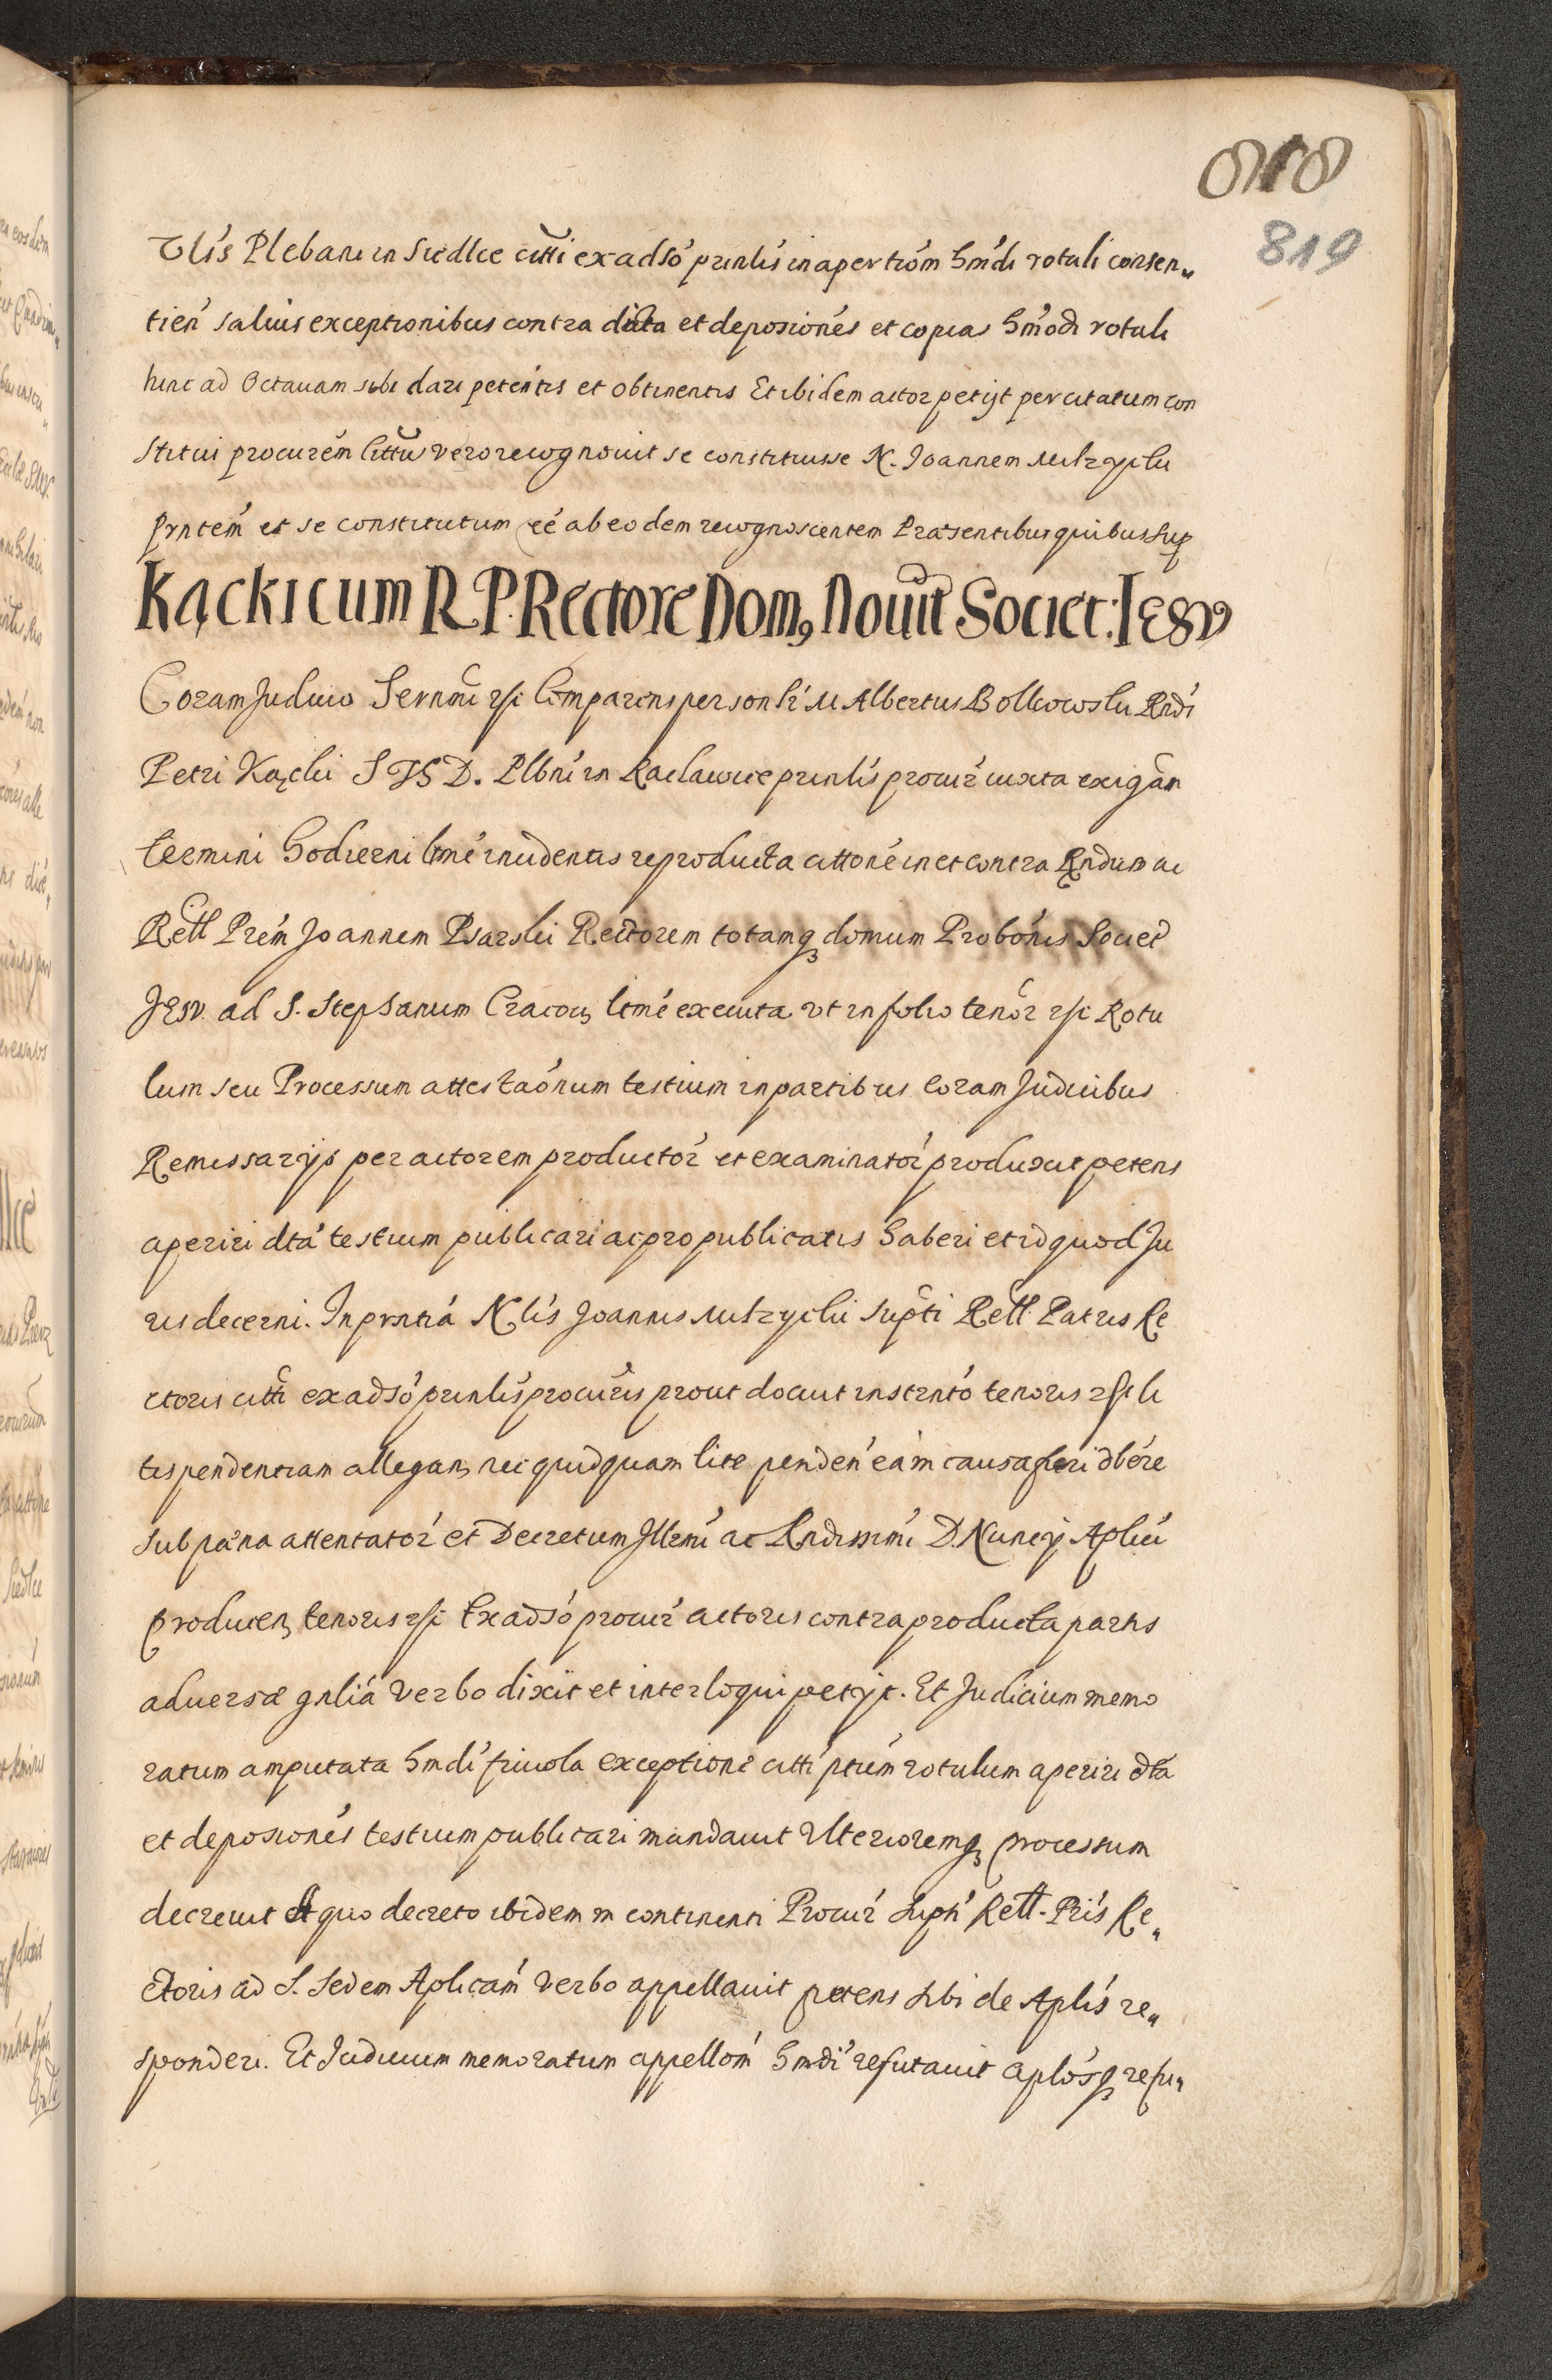 818
819
Ulís Plebani in Siedlce citti ex adsó prinlís in apertióm hmódi rotuli consen„
tień saluis exceptionibus contra dicta et deposiońes et copias hmódi rotuli
hinc ad Octauam sibi dari peteńtis et obtinentis Et ibidem actor petijt per citatum con
stitui procurém Cittus vero recognouit se constituisse N. Joannem Mulzycki
prntém et se constitutum eé ab eodem recognoscentem Præsentibus quibus sup
Kącki cum R. P. Rectore Dom, Nouit Societ: Iesv
Coram Judicio Sernmi rsi Comparens personlr M Albertus Bolkowski Rndi
Petri Kącki S TH D. Plbní in Raclawice prinlís procur iuxta exigān
termini hodierni ltmé incidentis reproducta cittoné in et contra Rndum ac
Rell Prém Joannem Psarski Rectorem totamq domum Probońis Societ
JEsv. ad S. Stephanum Cracou, ltmé executa vt in folio tenór rsi Rotu
lum seu Processum attestaónum testium in partibus coram Judicibus
Remissarijs per actorem productór et examinatór produxit petens
aperiri dtá testium publicari ac pro publicatis haberi et id quod Ju
ris decerni. In prntiá Nlís Joannis Mulzycki supti Rell. Patris Re
ctoris citti ex adsó prinlís procuris prout docuit instrntó tenoris rsi li
tis pendentiam allegan, nec quidquam lite pendeń eám causa fieri dbére
sub pæna attentatór et Decretum Illrmi ac Rndissimi D. Nuncij Aplici
producen, tenoris rsi Ex adsó procur actoris contra producta partis
aduersæ gnliá verbo dixit et interloqui petijt. Et Judicium memo
ratum amputata hmdi friuola exceptione citti ptúm rotulum aperiri dta
et deposiońes testium publicari mandauit Vlterioremq processum
decreuit A quo decreto ibidem in continenti Procur supti Rell. Prís Re„
ctoris ad S. Sedem Aplicám verbo appellauit petens sibi de Aplís re„
sponderi. Et Judicium memoratum appellóm hmdi refutauit aplósq refu„